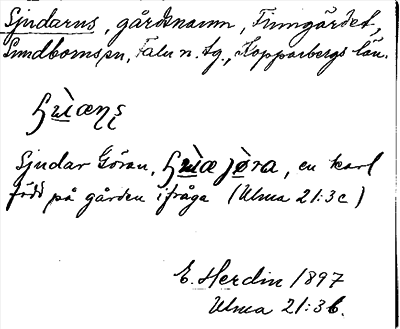 Sjudarns, gårdsnamn, Finngärdet,
Sundborns sn, Falu n. tg., Kopparbergs län.
Sjudar Göran, en karl
född på gården ifråga (Ulma 21:3c)
E. Herdin 1897
Ulma 21:3b.